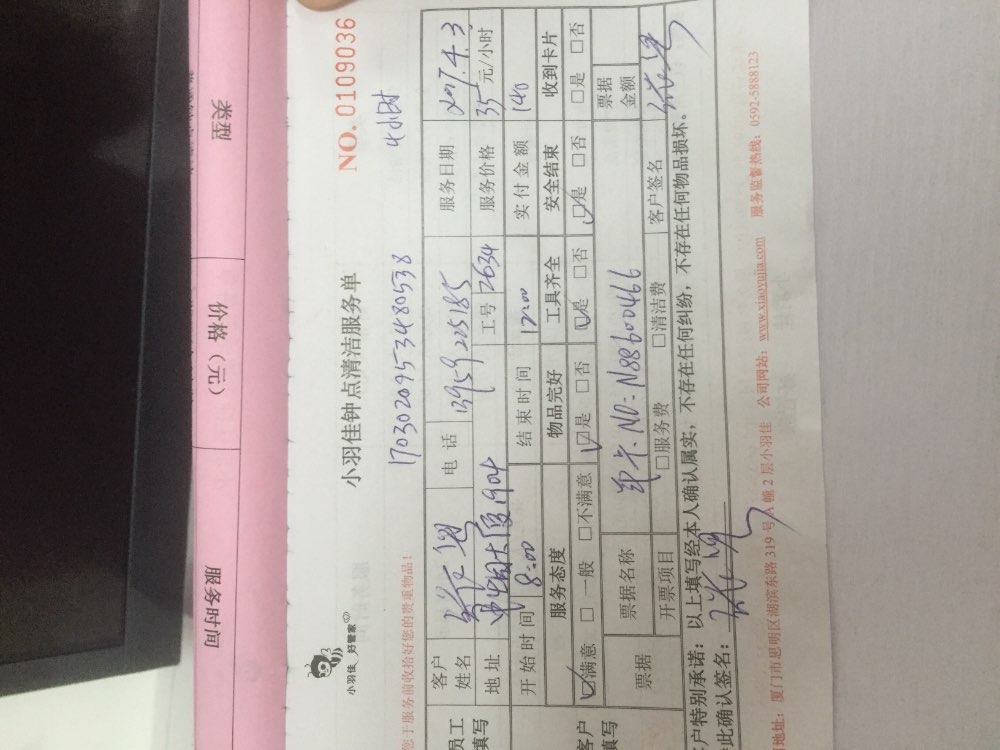 类型
价格（元）
服务时间
小羽佳 好管家
小羽佳钟点清洁服务单
NO. 0109036
1703020953480538
4小时
您于服务前收拾好您的贵重物品！
员工
填写
客户
姓名
电 话 13959225185
服务日期 2017.4.3
地址 申田大厦1904
工号 2634
服务价格 35元/小时
开始时间 8:00
结束时间 12:00
实付金额 140
服务态度
物品完好
工具齐全
安全结束
收到卡片
客户
填写
☑满意 □一般 □不满意
☑是 □否
☑是 □否
☑是 □否
□是 □否
票据
票据名称
NO=N88600466
票据
金额
开票项目
□服务费
□清洁费
客户签名
户特别承诺：以上填写经本人确认属实，不存在任何纠纷，不存在任何物品损坏。
此确认签名：
地址：厦门市思明区湖滨东路 319 号 A 幢 2 层小羽佳 公司网站：www.xiaoyujia.com 服务监督热线：0592-5888123